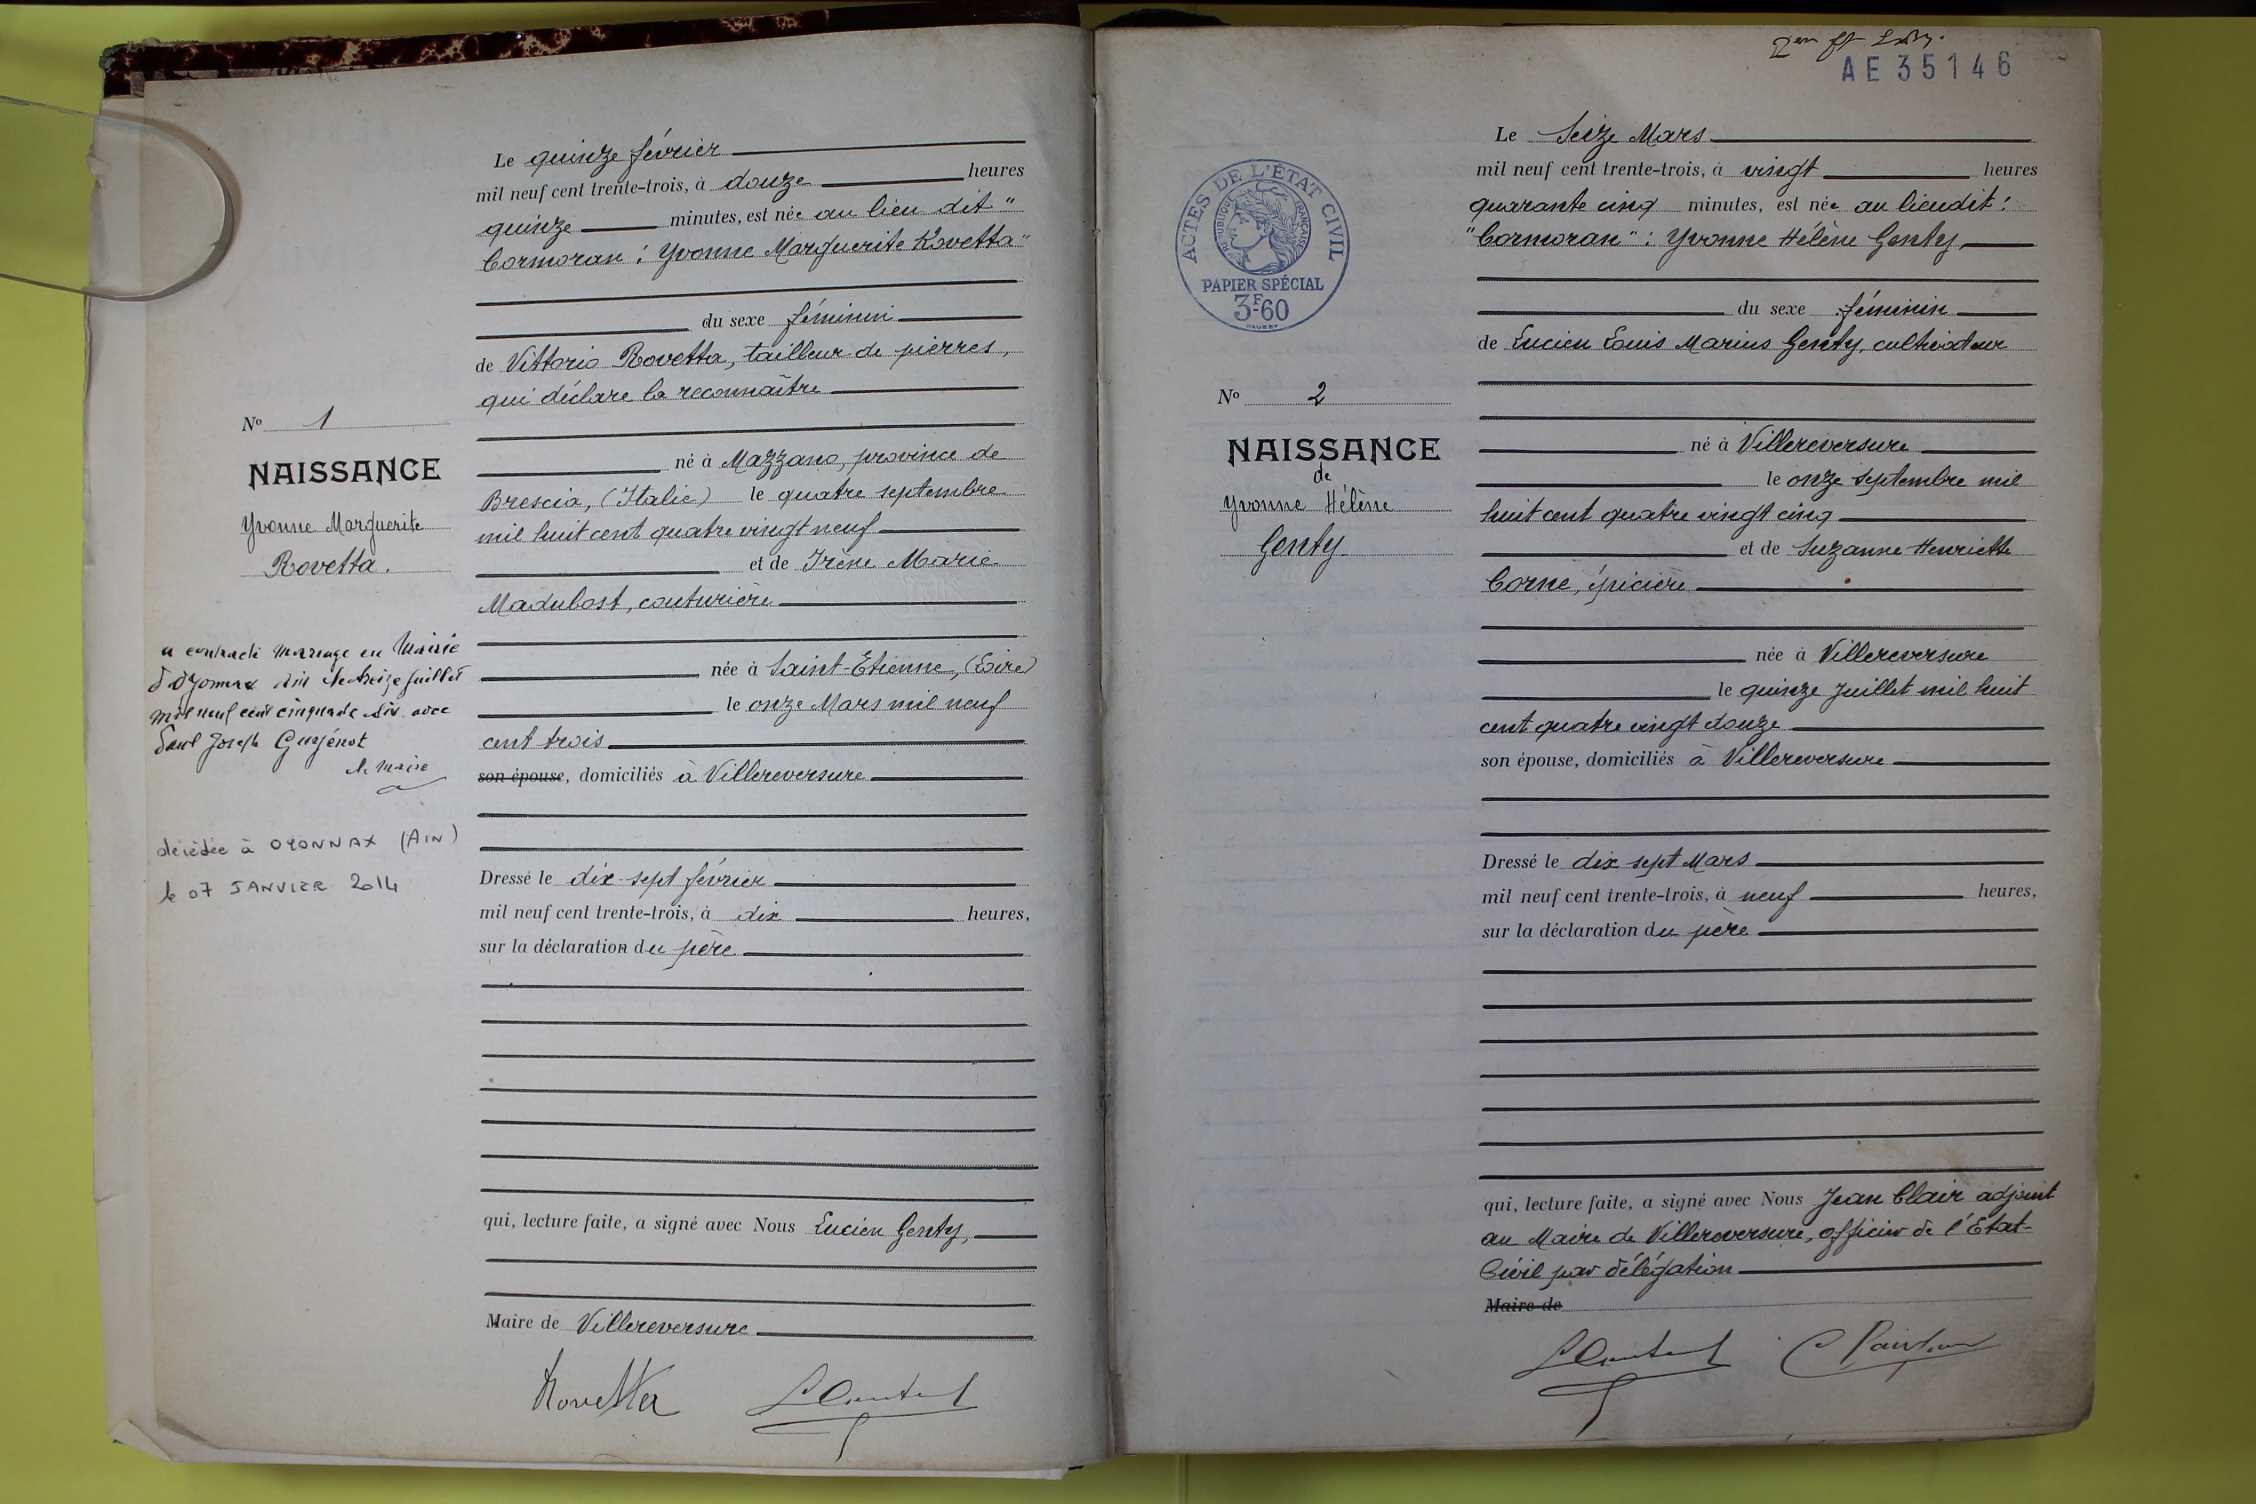 Le quinze février
mil neuf cent trente-trois, à douze heures
quinze minutes, est née au lieu dit "
Cormoran : Yvonne Marguerite Rovetta"
du sexe féminin
de Vittorio Rovetta, tailleur de pierres,
qui déclare la reconnaître
né à Mazzano, province de
Brescia, (Italie) le quatre septembre
mil huit cent quatre vingt neuf
et de Irène Marie
Madubost, couturière
née à Saint-Etienne, (Loire)
le onze Mars mil neuf
cent trois
son épouse, domiciliés à Villereversure
Dressé le dix-sept février
mil neuf cent trente-trois, à dix heures,
sur la déclaration du père
qui, lecture faite, a signé avec Nous Lucien Genty,
Maire de Villereversure
Rovetta
No 1
NAISSANCE
Yvonne Marguerite
Rovetta.
a contracté mariage en Mairie
d'Oyonnax Ain le treize juillet
mil neuf cent cinquante six avec
Paul Joseph
le Maire
décédée à OYONNAX (AIN)
le 07 JANVIER 2014
AE35146
ACTES DE L'ÉTAT CIVIL
RÉPUBLIQUE FRANÇAISE
PAPIER SPÉCIAL
3F60
No 2
NAISSANCE
de
Yvonne Hélène
Genty
Le Seize Mars
mil neuf cent trente-trois, à vingt heures
quarante cinq minutes, est née au lieudit :
"Cormoran" : Yvonne Hélène Genty
du sexe féminin
de Lucien Louis Marius Genty, cultivateur
né à Villereversure
le onze septembre mil
huit cent quatre vingt cinq
et de Suzanne Henriette
Corne, épicière
née à Villereversure
le quinze Juillet mil huit
cent quatre vingt douze
son épouse, domiciliés à Villereversure
Dressé le dix sept Mars
mil neuf cent trente-trois, à neuf heures,
sur la déclaration du père
qui, lecture faite, a signé avec Nous Jean Clair adjoint
au Maire de Villereversure, officier de l'Etat-
Civil par délégation
Maire de